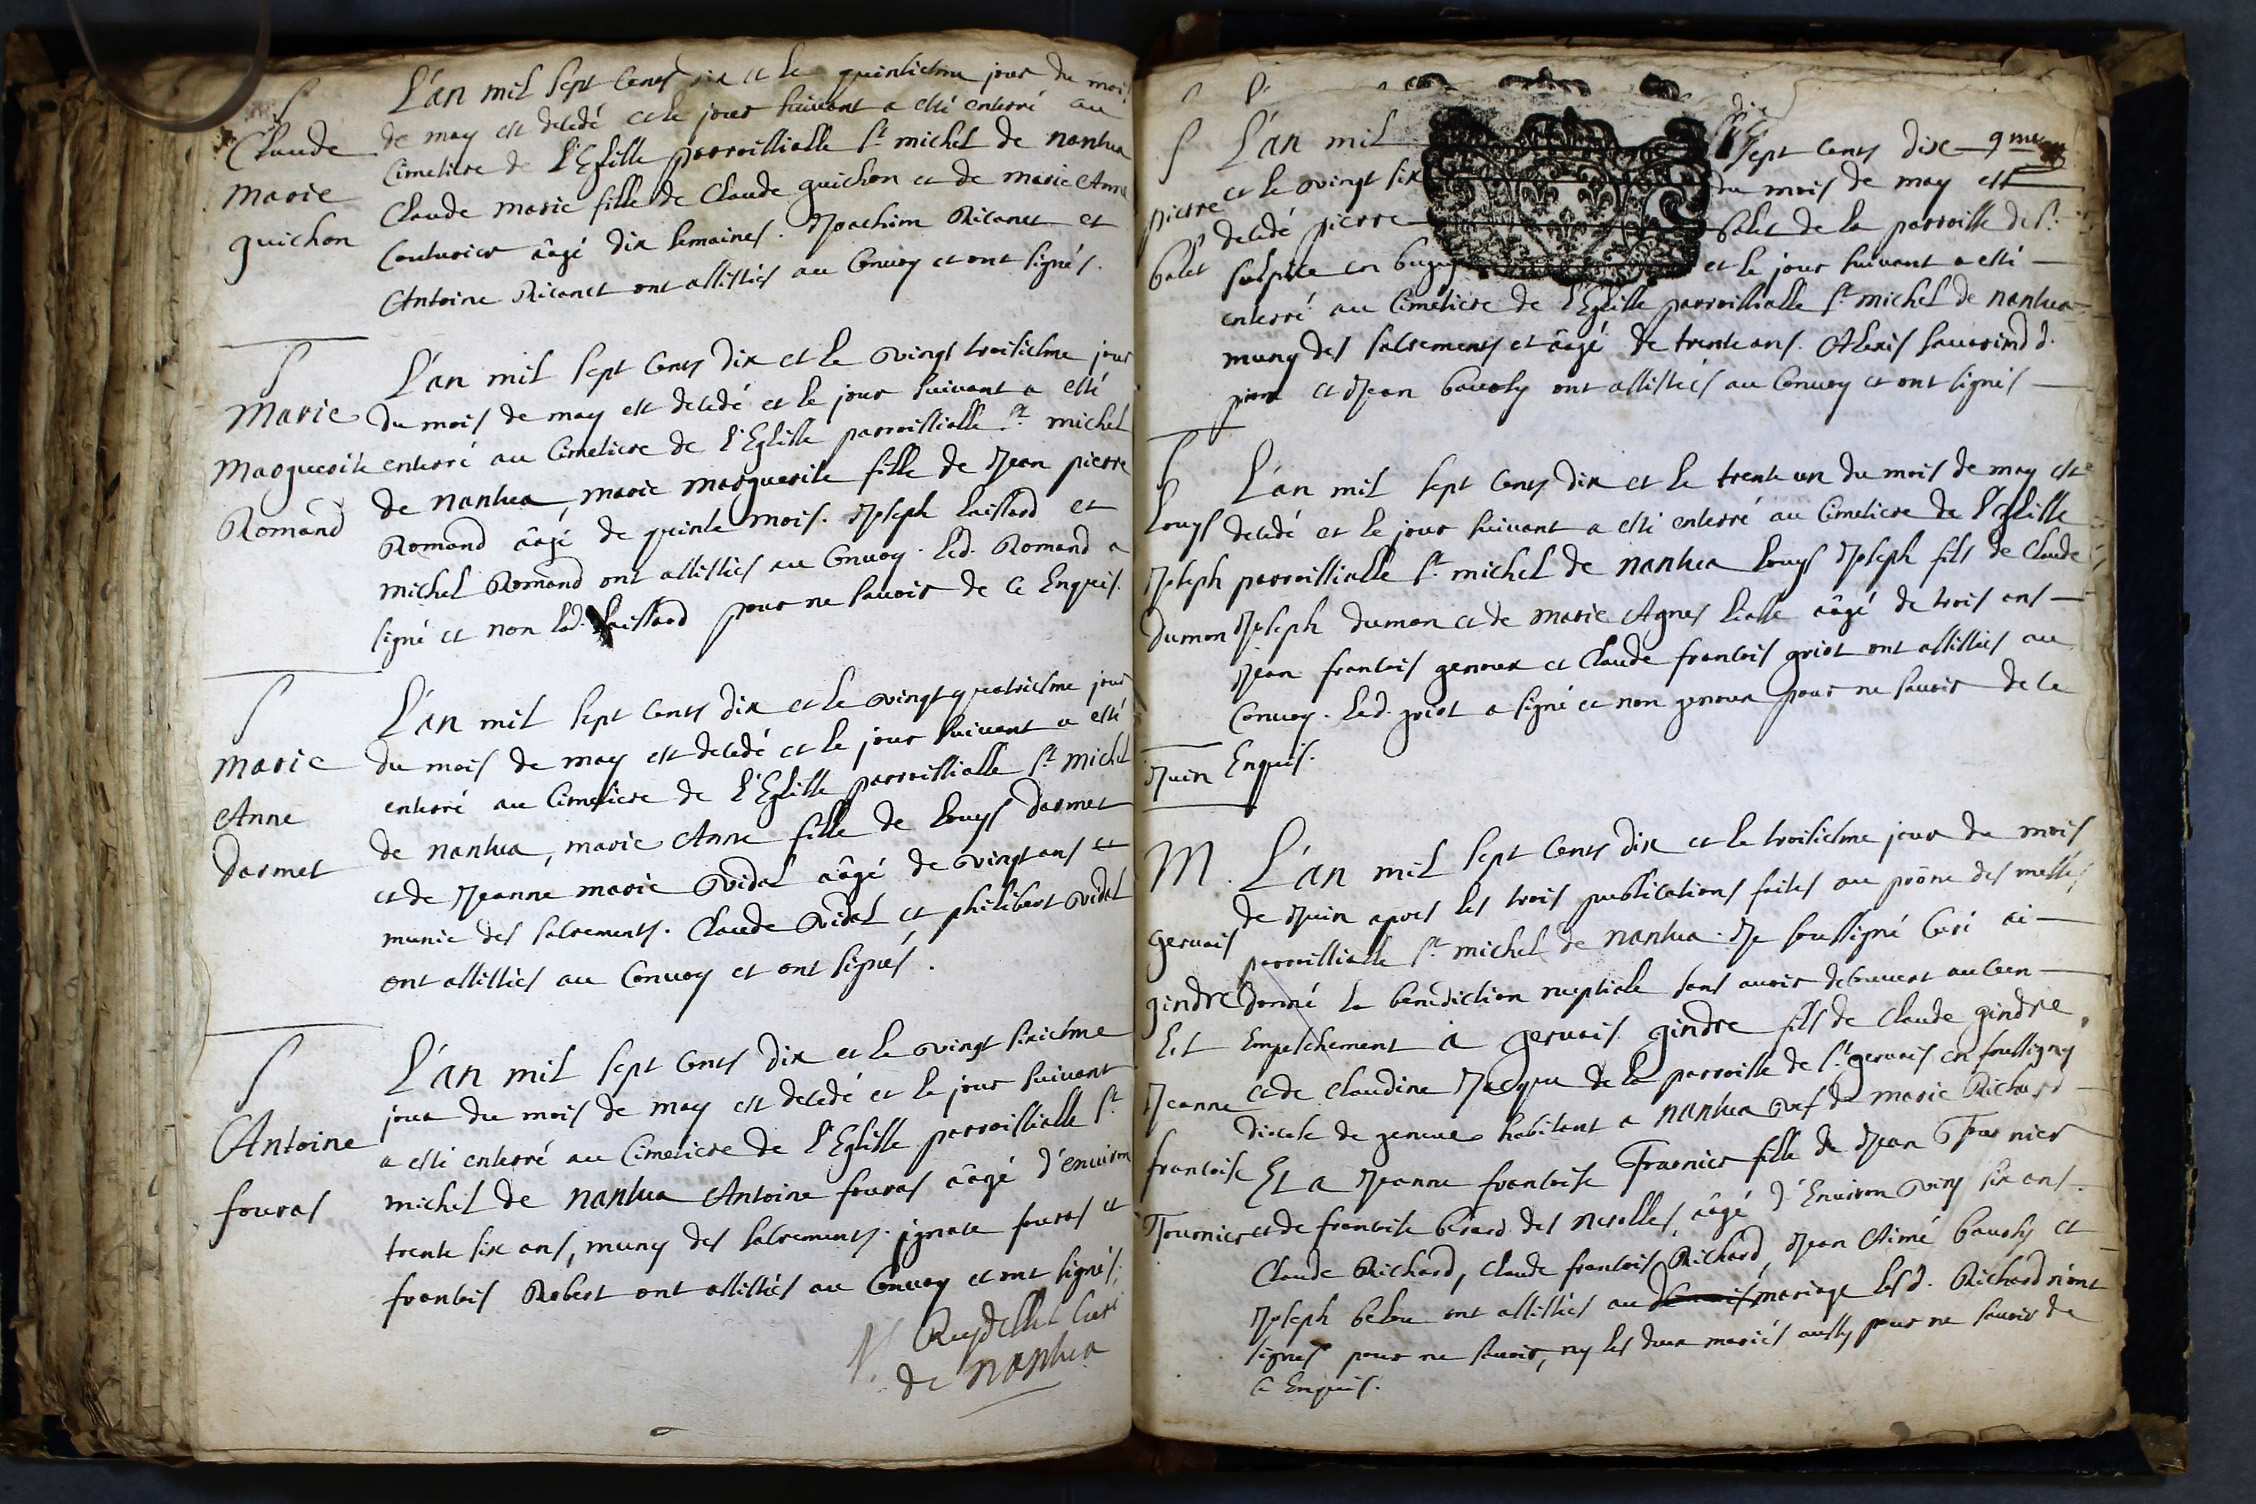 S
Claude
Marie
guichon
L'an mil sept cents dix et le quinziesme jour du mois
de may est decedé et le jour suivant a esté enterré au
cimetiere de l'Eglisse parroissialle St michel de nantua
Claude marie fille de Claude guichon et de marie Anne
Couturier aâgé dix semaines. Joachim Ricanet et
Antoine Ricanet ont assistés au Convoy et ont signés.
S
Marie
Marguerite
Romand
L'an mil sept cents dix et le vingt troisiesme jour
du mois de may est decedé et le jour suivant a esté
enterré au Cimetiere de l'Eglisse parroissialle St michel
de nantua, marie marguerite fille de Jean pierre
Romand aâgé de quinze mois. Joseph laissard et
michel Romand ont assistés au Convoy. Led. Romand a
signé et non led. laissard pour ne savoir de ce Enquis.
S
Marie
Anne
darmet
L'an mil sept cents dix et le vingt quatriesme jour
du mois de may est decedé et le jour suivant a esté
enterré au Cimetiere de l'Eglisse parroissialle St michel
de nantua, marie Anne fille de Louys darmet
et de Jeanne marie vidal aâgé de vingt ans et
munie des sacrements. Claude vidal et philibert vidal
ont assistés au Convoy et ont signés.
S
Antoine
fouras
L'an mil sept cents dix et le vingt sixiesme
jour du mois de may est decedé et le jour suivant
a esté enterré au Cimetiere de l'Eglisse parroissialle St
michel de nantua Antoine fouras aâgé d'environ
trente six ans, muny des sacrements. ignace fouras et
francois Robert ont assistés au Convoy et ont signés.
Reydellet Curé
de nantua
S
pierre
balet
L'an mil sept cents dix
et le vingt six du mois de may est
decedé pierre balet de la parroisse de St
sulpice en bugey et le jour suivant a esté
enterré au Cimetiere de l'Eglisse parroissialle St michel de nantua
muny des sacrements et aâgé de trente ans. Alexis savarind d.
et Jean bavoly ont assistés au Convoy et ont signés
S
Louys
Joseph
dumon
L'an mil sept cents dix et le trente un du mois de may est
decedé et le jour suivant a esté enterré au Cimetiere de l'Eglisse
parroissialle St michel de nantua Louys Joseph fils de Claude
Joseph dumon et de marie Agnes aâgé de trois ans
Jean francois genoux et Claude francois griot ont assistés au
Convoy. Led. griot a signé et non genoux pour ne savoir de ce
Enquis.
Juin
M.
gervais
gindre
Et
Jeanne
francoise
Tournier
L'an mil sept cents dix et le troisiesme jour du mois
de Juin apres les trois publications faites au prône des messes
parroissialle St michel de nantua. Je soussigné Curé ai
donné la benediction nuptiale sans avoir decouvert aucun
Empeschement a gervais gindre fils de Claude gindre
et de claudine Jacque de la parroisse de St gervais en foussigny
diocese de geneve habitant a nantua vef de marie Richard
Et a Jeanne francoise Tournier fille de Jean Tournier
et de francoise berard des nerolles, aâgé d'Environ vingt six ans.
Claude Richard, claude francois Richard, Jean Aimé bavoly et
Joseph belou ont assistés au mariage lesd. Richard n'ont
signés pour ne savoir, ny les deux mariés aussy pour ne savoir de
ce Enquis.